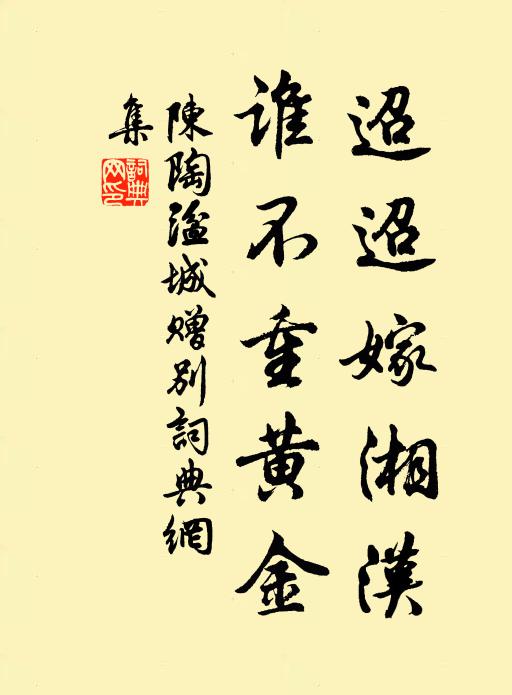 迢迢嫁湘漢
誰不重黃金
陳陶湓城贈別詞典網
集
詞典
网印